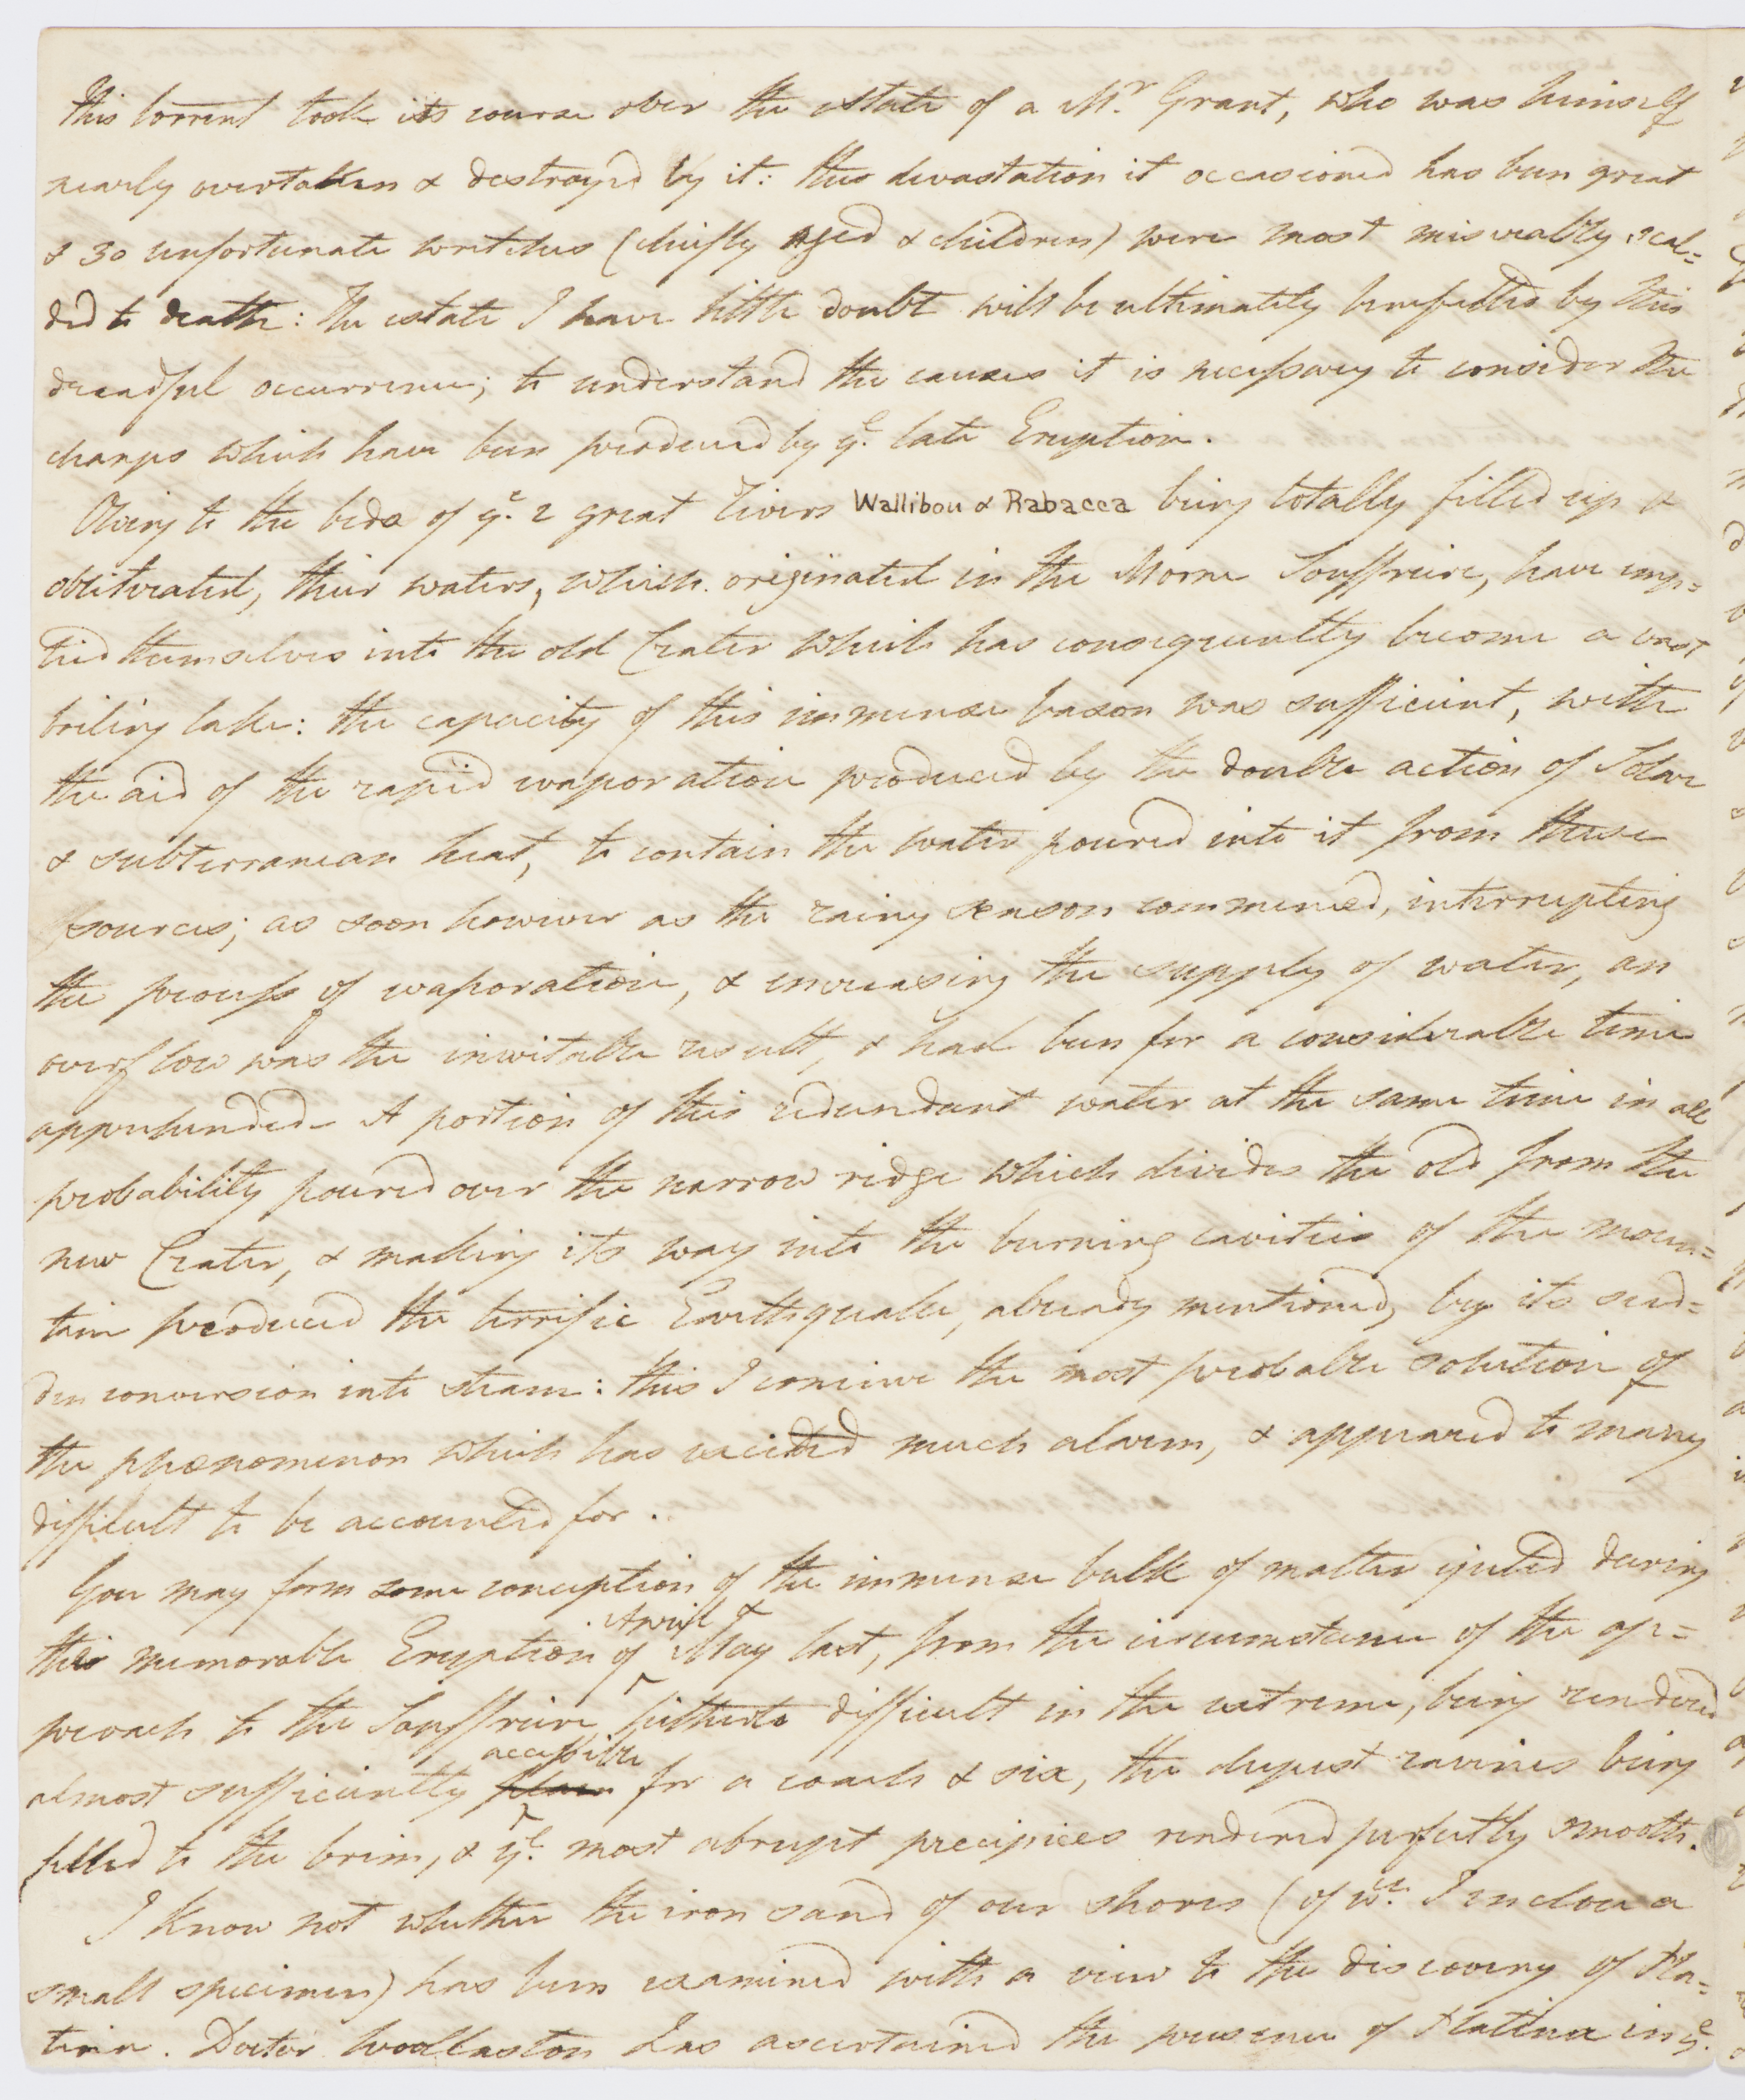 This torrent took its course over the estate of a Mr. Grant, who was himself
nearly overtaken & destroyed by it: the devastation it occasioned has been great
& 30 unfortunate wretches (chiefly Aged & children) were most miserably scal=
ded to death: The estate I have little doubt will be ultimately benefitted by this
dreadful occurrence; to understand the causes it is necessary to consider the
changes which have been produced by ye. late Eruption.
Owing to the beds of ye. 2 great rivers Wallibou & Rabacca being totally filled up &
obliterated, their waters, which originated in the Morne Souffriere, have emp=
tied themselves into the old Crater which has consequently become a vast
boiling lake: the capacity of this immense bason was sufficient, with
the aid of the rapid evaporation produced by the double action of Solar
& subterranean heat, to contain the water poured into it from these
sources; as soon however as the rainy season commenced, interrupting
the process of evaporation, & increasing the supply of water, an
overflow was the inevitable result, & had been for a considerable time
apprehended. A portion of this redundant water at the same time in all
probability poured over the narrow ridge which divides the old from the
new Crater, & making its way into the burning cavities of the moun=
tain produced the terrific Earthquake, already mentioned, by its sud=
den conversion into steam: this I conceive the most probable solution of
the phænomenon which has excited much alarm, & appeared to many
difficult to be accounted for.
You may form some conception of the immense bulk of matter ejected during
April &
this memorable Eruption of May last, from the circumstance of the ap=
proach to the Souffriere, hitherto difficult in the extreme, being rendered
accessible
almost sufficiently plain for a coach & six, the deepest ravines being
filled to the brim, & ye. most abrupt precipices rendered perfectly smooth.
I know not whether the iron sand of our shores (of wch. I enclose a
small specimen) has been examined with a view to the discovery of Pla=
tina. Doctor Woollaston has ascertained the presence of Platina in ye.